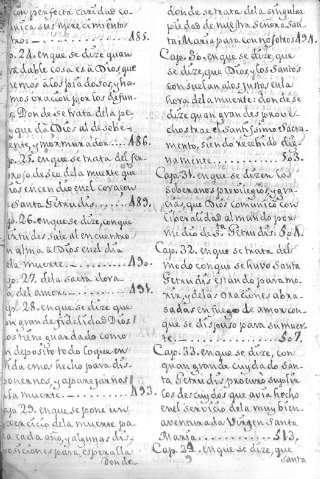 con perfecta caridad co
nuestros - - - - 485.
p. 24. en que se dize quan
dable cosa es à Dios que
hagamos oracion por los difun
Donde se trata de la pe
que dà Dios al desobe
ente, y mormurador. - 486.
p. 25. en que se trata del fer
deseo de la muerte que
encendio en el coraçon
Santa Getrudis. - - - 489.
p. 26. en que se dize, con que
virtudes sale al encuentro
alma à Dios en el dia
la muerte. - - - - - 490.
p. 27. de la saeta dora
del amor. - - - - 491.
p. 28. en que se dize que
gran fidelidad Dios
tiene guardado como
en deposito todo lo que en
vida emos hecho para dis
ponernos, y aparejarnos
la muerte. - - - - - 493.
cap. 29. en que se pone un
exercicio de la muerte pa
cada año, y algunas dis
posiciones para esperalla
Donde
donde se trata de la singular
piedad de nuestra Señora San
ta Maria para con nosotros 494.
Cap. 30. en que se dize, que
se dize, que Dios, y los Santos
consuelan a los justos en la
hora de la muerte: donde se
dize quan grandes provec
hos trae el santissimo Sacra
mento, siendo recebido dig
namente. - - - - - 503.
Cap. 31. en que se dizen los
soberanos privilegios, y gra
cias, que Dios comunica con
liberalidad al mundo por
medio de Sta. Getrudis. 504.
Cap. 32. en que se trata del
modo con que se huvo Santa
Getrudis estando para mo
rir, y de las oraciones abra
sadas en fuego de amor con
que se dispuso para su muer
te. - - - - - 507.
Cap. 33. en que se dize, con
quan grande cuydado San
ta Getrudis procuro suplir
los descuydos que avia hecho
en el servicio de la muy bien
aventurada Virgen Santa
Maria. - - - - - 513.
Cap. 34. en que se dize, que
santa